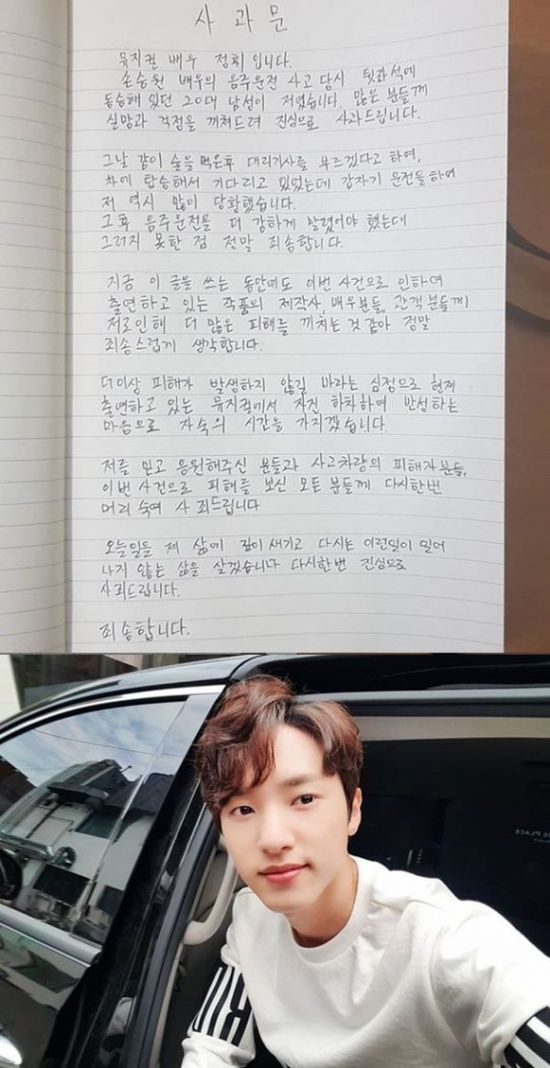 사과문
뮤지컬 배우 정휘 입니다.
손승원 배우의 음주운전 사고 당시 뒷좌석에
동승해 있던 20대 남성이 저였습니다. 많은 분들께
실망과 걱정을 끼쳐드려 진심으로 사과드립니다.
그날 같이 술을 먹은후 대리기사를 부르겠다고 하여,
차에 탑승해서 기다리고 있었는데 갑자기 운전을 하여
저 역시 많이 당황했습니다.
그후 음주운전을 더 강하게 말렸어야 했는데
그러지 못한 점 정말 죄송합니다.
지금 이 글을 쓰는 동안에도 이번 사건으로 인하여
출연하고 있는 작품의 제작사, 배우분들, 관객분들께
저로인해 더 많은 피해를 끼치는 것 같아 정말
죄송스럽게 생각합니다.
더이상 피해가 발생하지 않길 바라는 심정으로 현재
출연하고 있는 뮤지컬에서 자진 하차하여 반성하는
마음으로 자숙의 시간을 가지겠습니다.
저를 믿고 응원해주신 분들과 사고차량의 피해자분들,
이번 사건으로 피해를 보신 모든 분들께 다시한번
머리 숙여 사죄드립니다
오늘일을 제 삶에 깊이 새기고 다시는 이런일이 일어
나지 않는 삶을 살겠습니다 다시한번 진심으로
사죄드립니다.
죄송합니다.
PLACE